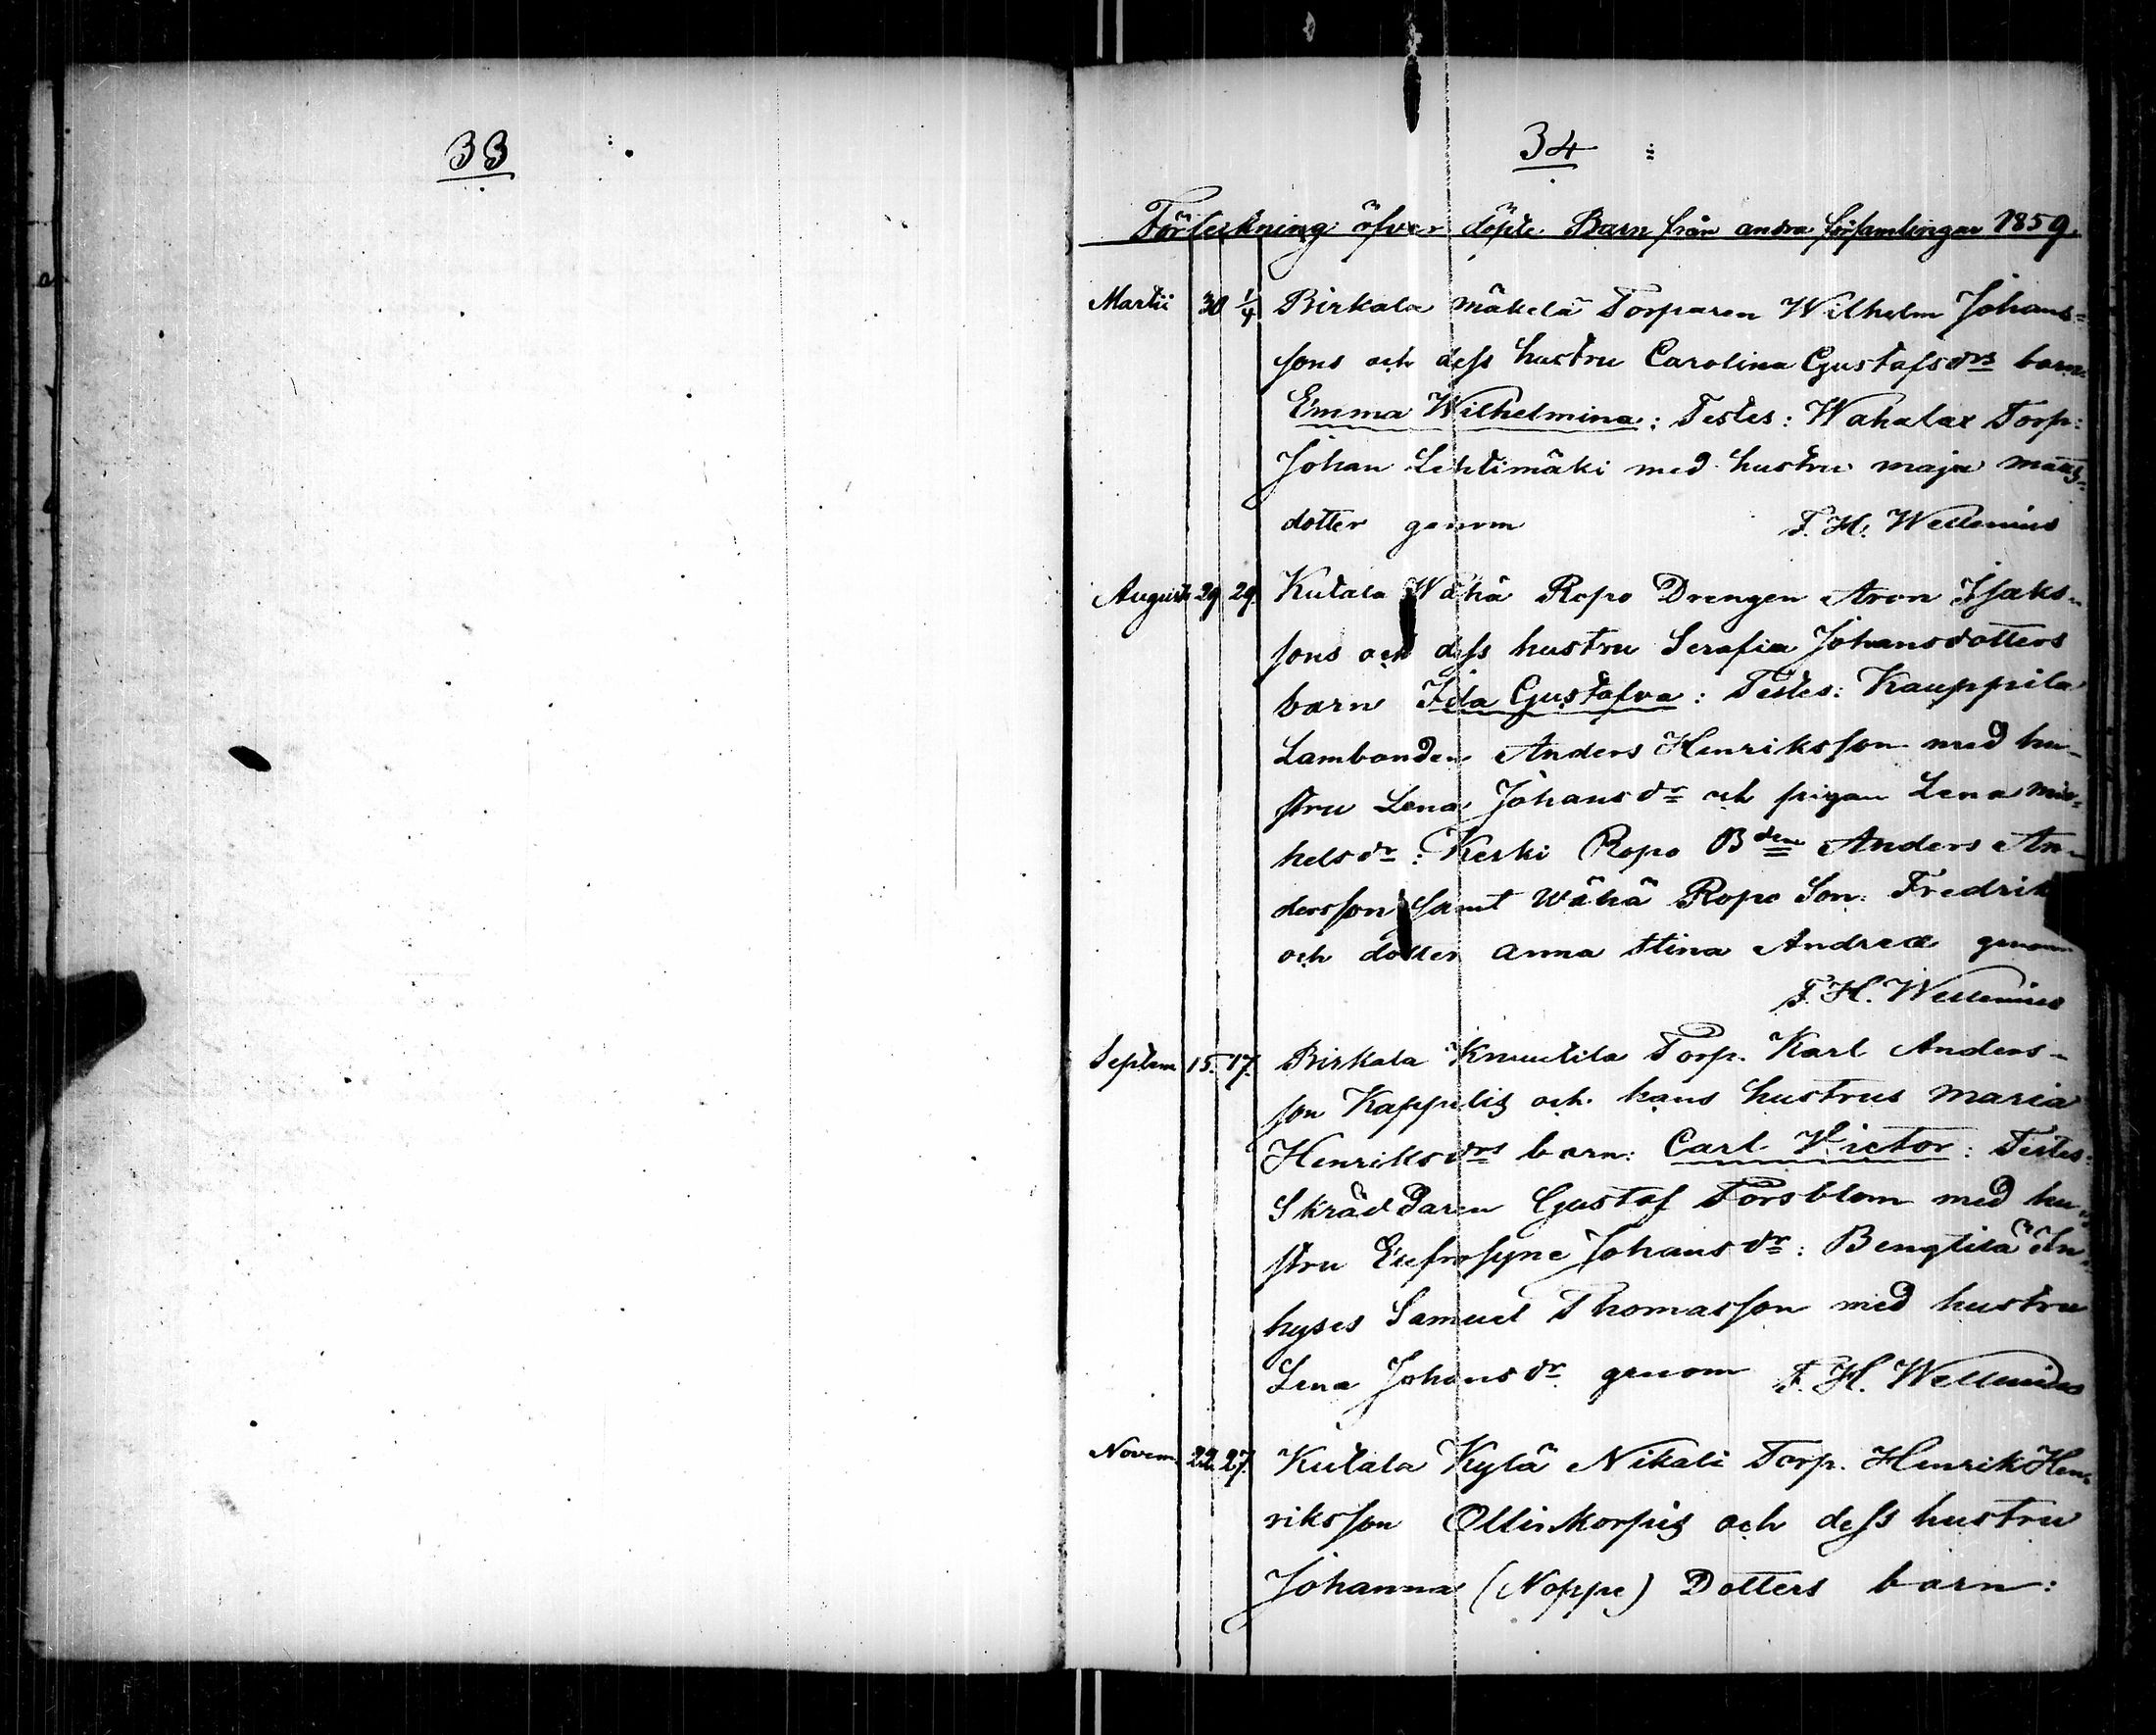 33
34
Förteckning öfver döpte Barn från andra församlingar 1859.
Martii 30 1/4 Birkala Mäkelä Torparen Wilhelm Johans=
sons och dess hustru Carolina Gustafsdrs barn:
Emma Wilhelmina: Testes: Wahalax Torp:
Johan Lehtimäki med hustru Maja Matts=
dotter genom F. H. Wellenius
Augusti 29 29. Kulala Wähä Ropo Drengen Aron Isaks-
sons och dess hustru Serafia Johansdotters
barn Ida Gustafva: Testes: Kauppila
Lambonden Anders Henriksson med hu-
stru Lena Johansdr och pigan Lena Mic-
helsdr: Keski Ropo Bden Anders An-
dersson samt Wähä Ropo Son: Fredrik
och dotter Anna Stina Andreæ genom
F. H. Wellenius
Septem 15. 17. Birkala Knuutila Torp. Karl Anders-
son Kappelig och hans hustrus Maria
Henriksdrs barn: Carl Victor: Testes:
Skräddaren Gustaf Forsblom med hu-
stru Eufrosyne Johansdr: Bengtilä In-
hyses Samuel Thomasson med hustru
Lena Johansdr genom F. H. Wellenius
Novem. 22. 27. Kulala Kylä Nikali Torp. Henrik Hen-
riksson Ollinkorpis och dess hustru
Johanna (Noppe) Dotters barn: